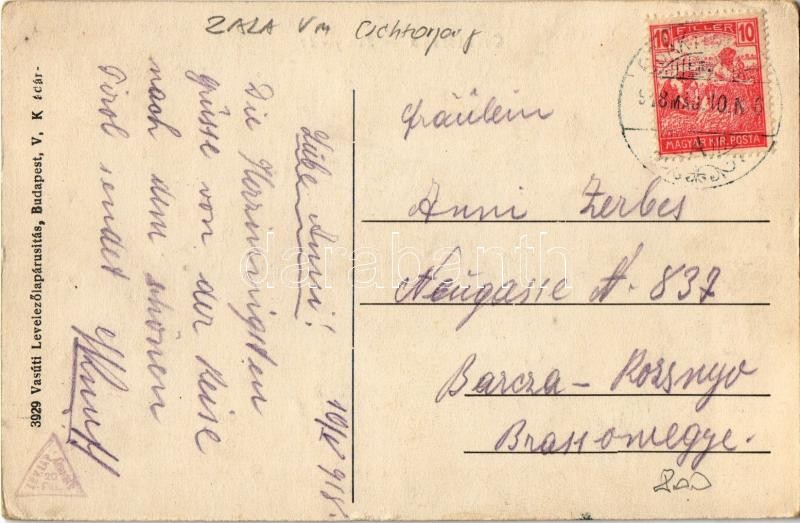 ZALA Vm
10 FILLER 10
MAGYAR KIR. POSTA
918 MÁJ 10
Fräulein
Anni Zerbes
Neugasse N. 837
Barcza-Rozsnyo
Brassomegye.
Liebe Anni!
Die Herzinnigsten
grüsse von der Reise
nach dem schönen
Tirol sendet
10/V 918.
3929 Vasúti Levelezőlapárusítás, Budapest, V, K
darabanth